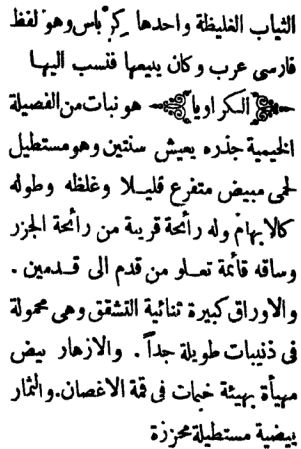 الثياب الغليظة واحدها كرباس وهو لفظ
فارسى عرب وكان يبيعها فنسب اليها
﴿الكراويا﴾ هو نبات من الفصيلة
الخيمية جذره يعيش سنتين وهو مستطيل
لحمى مبيض متفرع قليلا وغلظه وطوله
كالابهام وله رائحة قريبة من رائحة الجزر
وساقه قائمة تعلو من قدم الى قدمين .
والاوراق كبيرة ثنائية التشقق وهى محمولة
فى ذنيبات طويلة جداً . والازهار بيض
مهيأة بهيئة خيمات فى قمة الاغصان. والثمار
بيضية مستطيلة محززة